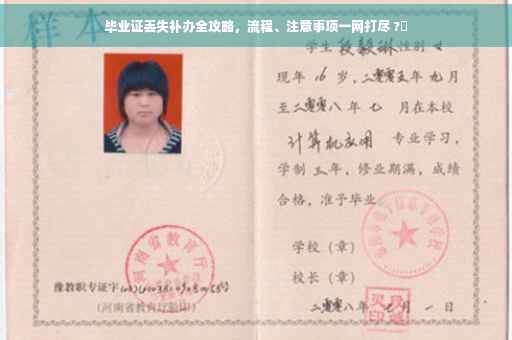 毕业证丢失补办全攻略，流程、注意事项一网打尽 ?
样本
学生段毅琳性别女
现年16岁，二零零五年九月
至二零零八年七月在本校
计算机应用 专业学习，
学制三年，修业期满，成绩
合格，准予毕业
学校（章）
河南省教育厅
校长（章）
豫教职专证字
（河南省教育厅验印）
二零零八年七月一日